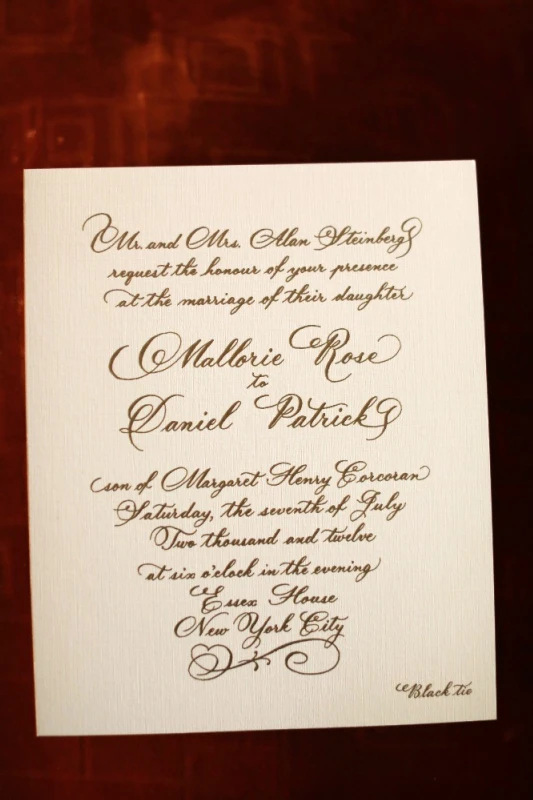 Mr. and Mrs. Alan Steinberg
request the honour of your presence
at the marriage of their daughter
Mallorie Rose
to
Daniel Patrick
son of Margaret Henry Corcoran
Saturday, the seventh of July
Two thousand and twelve
at six o'clock in the evening
Essex House
New York City
Black tie